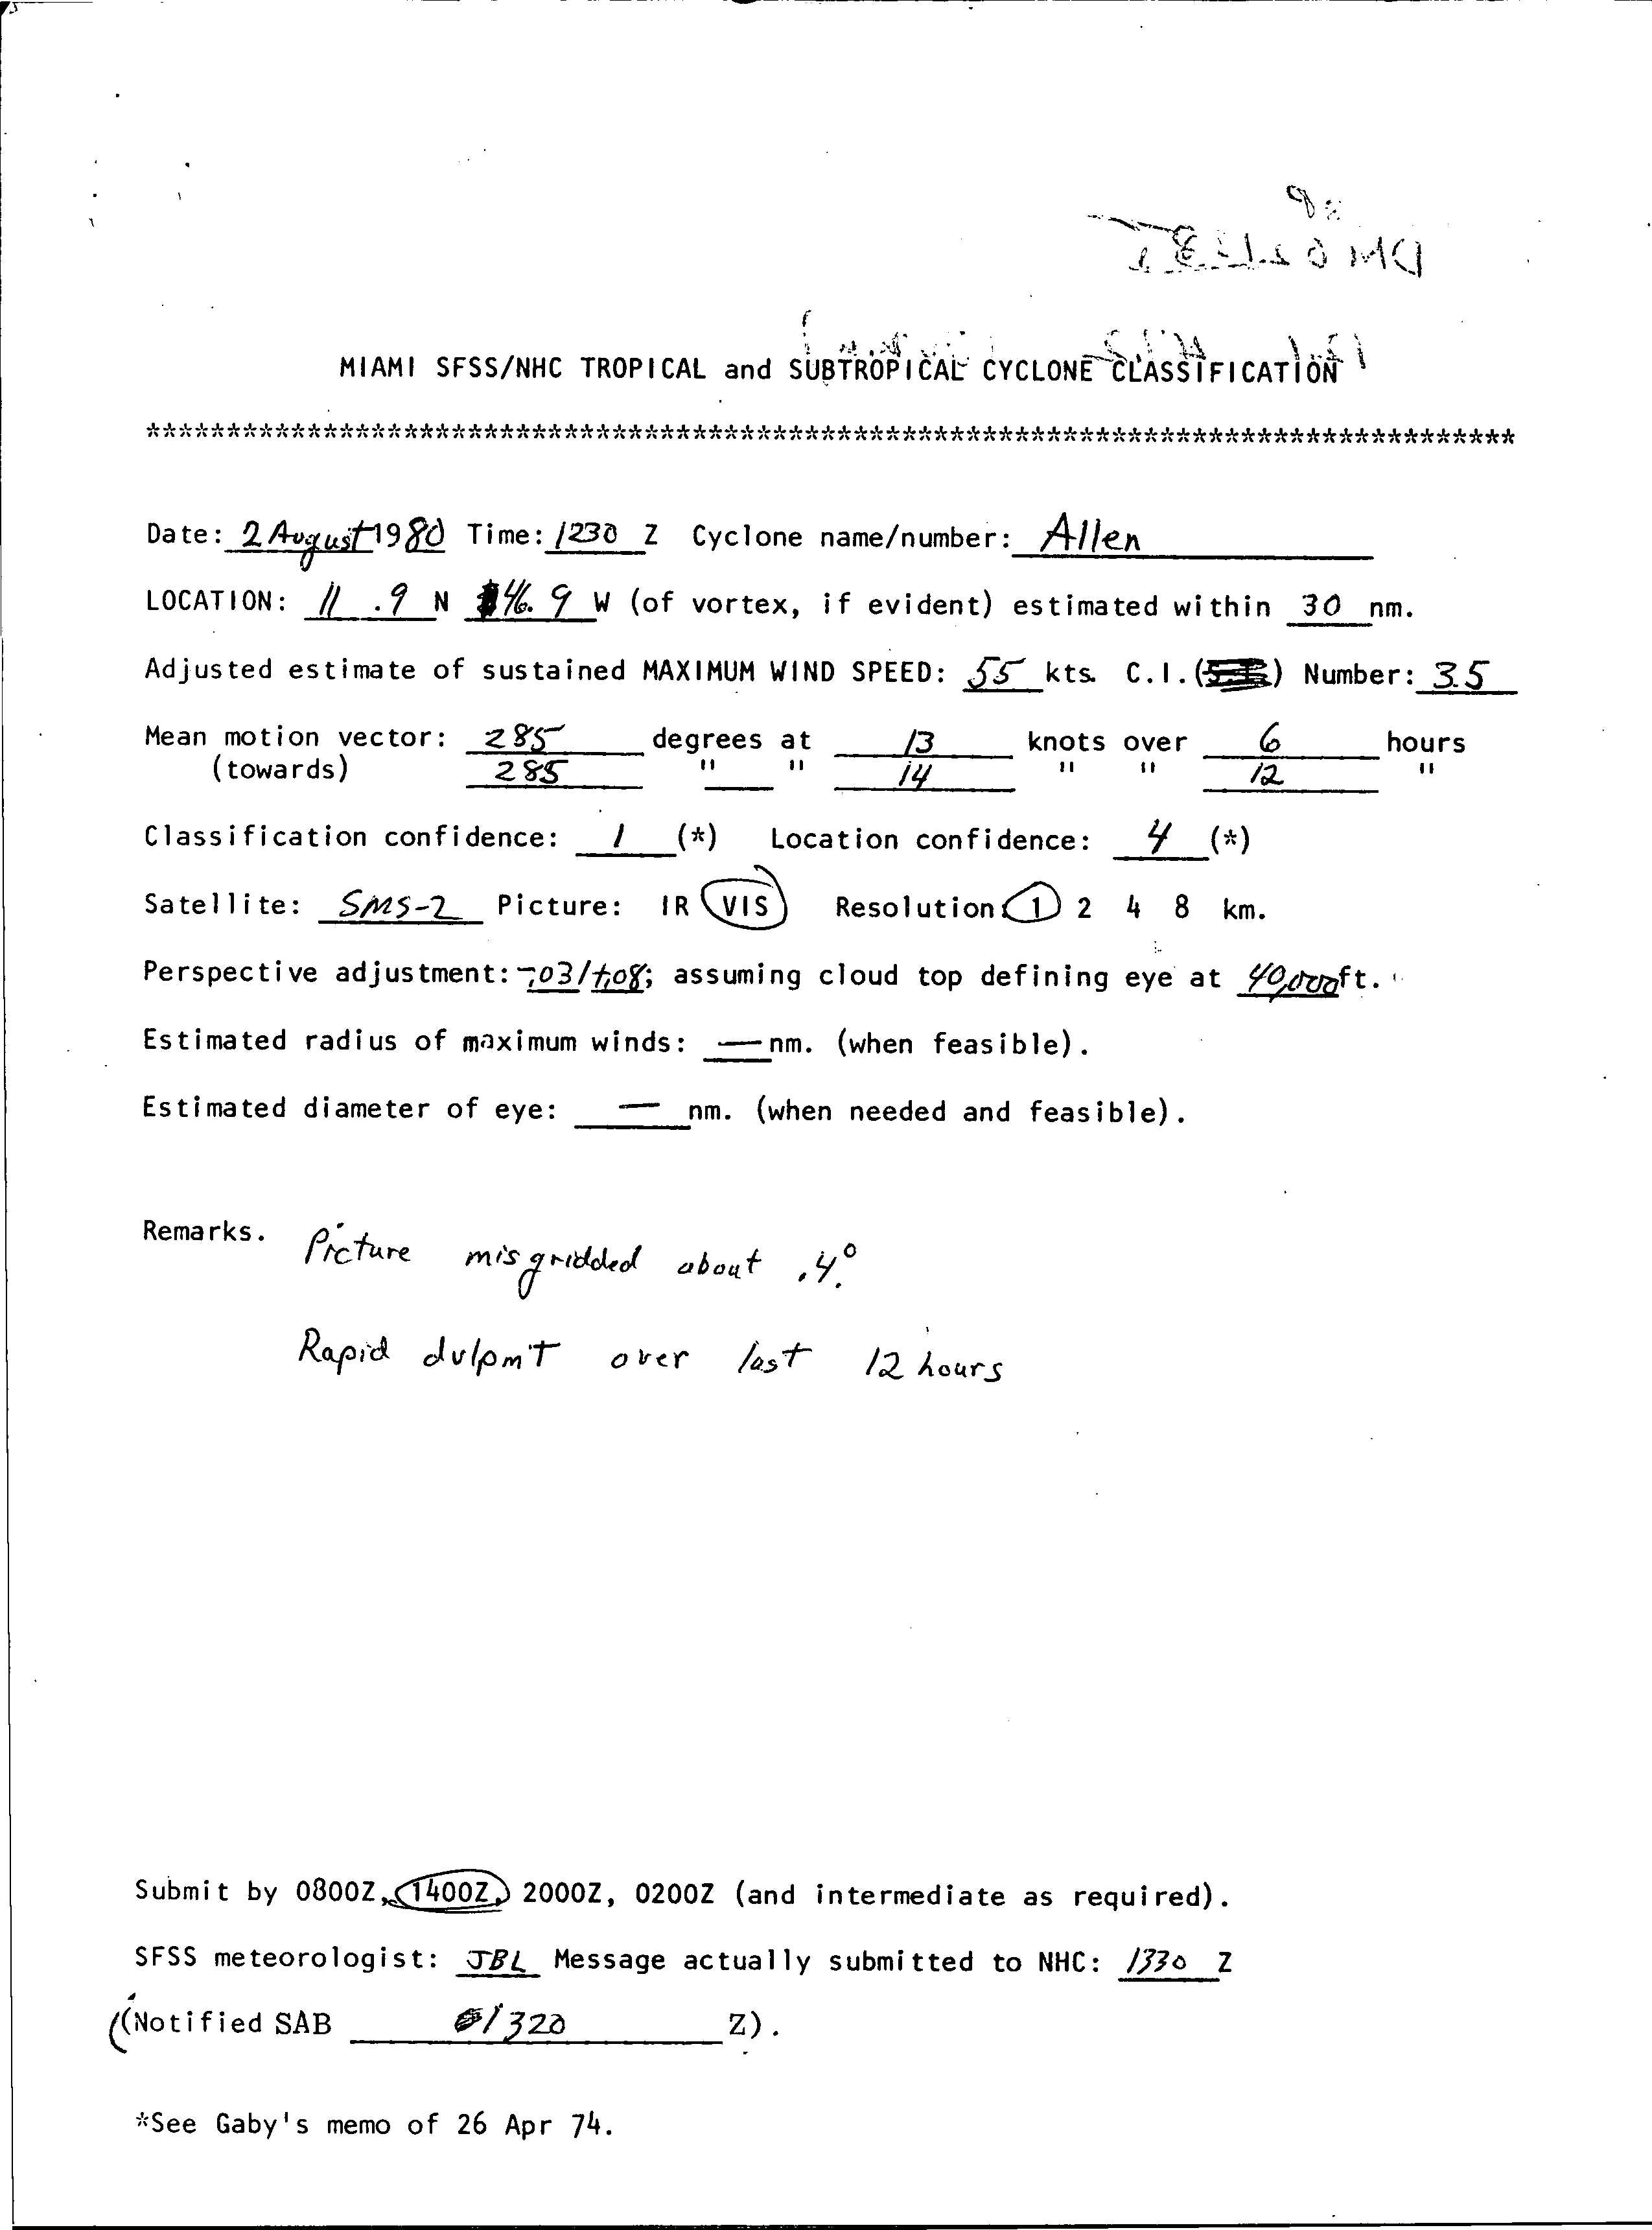 MIAMI SFSS/NHC TROPICAL and SUBTROPICAL CYCLONE CLASSIFICATION
*************************************************************************************
Date: 2 August 1980 Time: 1230 Z Cyclone name/number: Allen
LOCATION: 11.9 N 46.9 W (of vortex, if evident) estimated within 30 nm.
Adjusted estimate of sustained MAXIMUM WIND SPEED: 55 kts. C.I.( ) Number: 3.5
Mean motion vector: 285 degrees at 13 knots over 6 hours
(towards) 285 " " 14 " " 12 "
Classification confidence: 1 (*) Location confidence: 4 (*)
Satellite: SMS-2 Picture: IR VIS Resolution 1 2 4 8 km.
Perspective adjustment: -.03/+.08; assuming cloud top defining eye at 40,000 ft.
Estimated radius of maximum winds: — nm. (when feasible).
Estimated diameter of eye: — nm. (when needed and feasible).
Remarks. Picture misgridded about .4°.
Rapid dvlpm't over last 12 hours
Submit by 0800Z, 1400Z, 2000Z, 0200Z (and intermediate as required).
SFSS meteorologist: JBL Message actually submitted to NHC: 1330 Z
((Notified SAB 1320 Z).
*See Gaby's memo of 26 Apr 74.